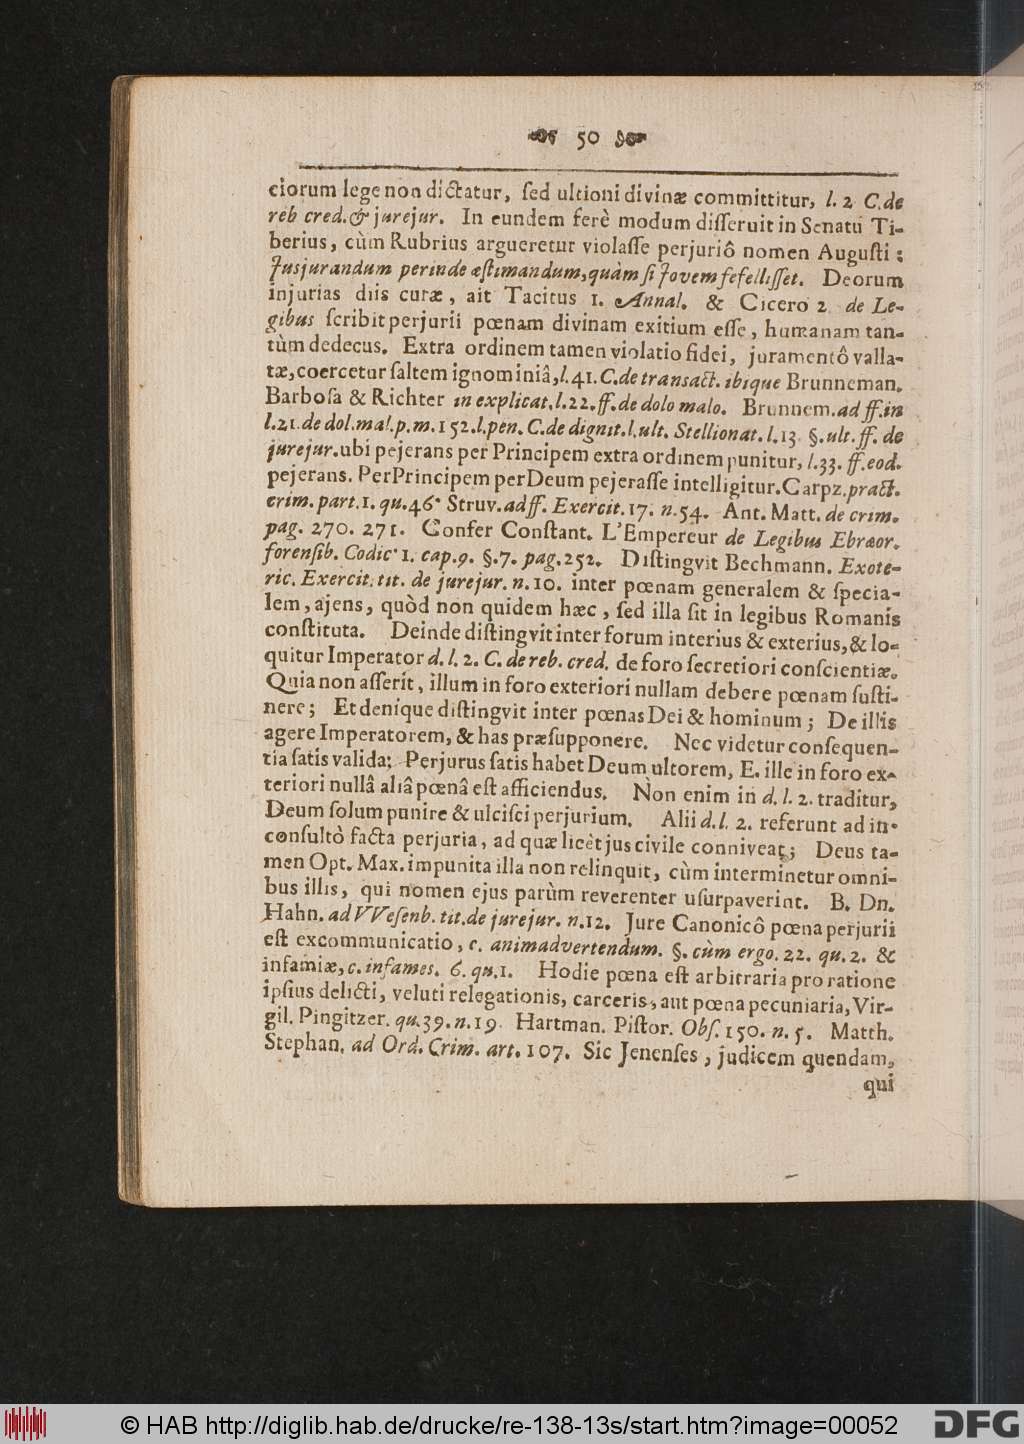 50
ciorum lege non dictatur, ſed ultioni divinæ committitur, l. 2 C. de
reb cred. & jurejur. In eundem ferè modum diſſeruit in Senatu Ti-
berius, cùm Rubrius argueretur violaſſe perjuriô nomen Auguſti:
Jusjurandum perinde æſtimandum, quàm ſi Jovem fefelliſſet. Deorum
injurias diis curæ, ait Tacitus 1. Annal. & Cicero 2 de Le-
gibus ſcribit perjurii pœnam divinam exitium eſſe, humanam tan-
tùm dedecus. Extra ordinem tamen violatio fidei, juramentô valla-
tæ, coercetur ſaltem ignominiâ, l. 41. C. de transact. ibique Brunneman.
Barboſa & Richter in explicat. l. 22. ff. de dolo malo. Brunnem. ad ff. in
l. 21. de dol. mal. p. m. 152. l. pen. C. de dignit. l. ult. Stellionat. l. 13. §. ult. ff. de
jurejur. ubi pejerans per Principem extra ordinem punitur, l. 33. ff. eod.
pejerans. Per Principem per Deum pejeraſſe intelligitur. Carpz. pract.
crim. part. 1. qu. 46. Struv. ad ff. Exercit. 17. n. 54. Ant. Matt. de crim.
pag. 270. 271. Confer Conſtant. L'Empereur de Legibus Ebræor.
forenſib. Codic. 1. cap. 9. §. 7. pag. 252. Diſtingvit Bechmann. Exote-
ric. Exercit. tit. de jurejur. n. 10. inter pœnam generalem & ſpecia-
lem, ajens, quòd non quidem hæc, ſed illa ſit in legibus Romanis
conſtituta. Deinde diſtingvit inter forum interius & exterius, & lo-
quitur Imperator d. l. 2. C. de reb. cred. de foro ſecretiori conſcientiæ.
Quia non aſſerit, illum in foro exteriori nullam debere pœnam ſuſti-
nere; Et denique diſtingvit inter pœnas Dei & hominum; De illis
agere Imperatorem, & has præſupponere. Nec videtur conſequen-
tia ſatis valida; Perjurus ſatis habet Deum ultorem, E. ille in foro ex-
teriori nullâ aliâ pœnâ eſt afficiendus. Non enim in d. l. 2. traditur,
Deum ſolum punire & ulciſci perjurium. Alii d. l. 2. referunt ad in-
conſultò facta perjuria, ad quæ licèt jus civile conniveat; Deus ta-
men Opt. Max. impunita illa non relinquit, cùm interminetur omni-
bus illis, qui nomen ejus parùm reverenter uſurpaverint. B. Dn.
Hahn. ad VVeſenb. tit. de jurejur. n. 12. Jure Canonicô pœna perjurii
eſt excommunicatio, c. animadvertendum. §. cùm ergo. 22. qu. 2. &
infamiæ, c. infames. 6. qu. 1. Hodie pœna eſt arbitraria pro ratione
ipſius delicti, veluti relegationis, carceris, aut pœna pecuniaria, Vir-
gil. Pingitzer. qu. 39. n. 19. Hartman. Piſtor. Obſ. 150. n. 5. Matth.
Stephan. ad Ord. Crim. art. 107. Sic Jenenſes, judicem quendam,
qui
© HAB http://diglib.hab.de/drucke/re-138-13s/start.htm?image=00052
DFG